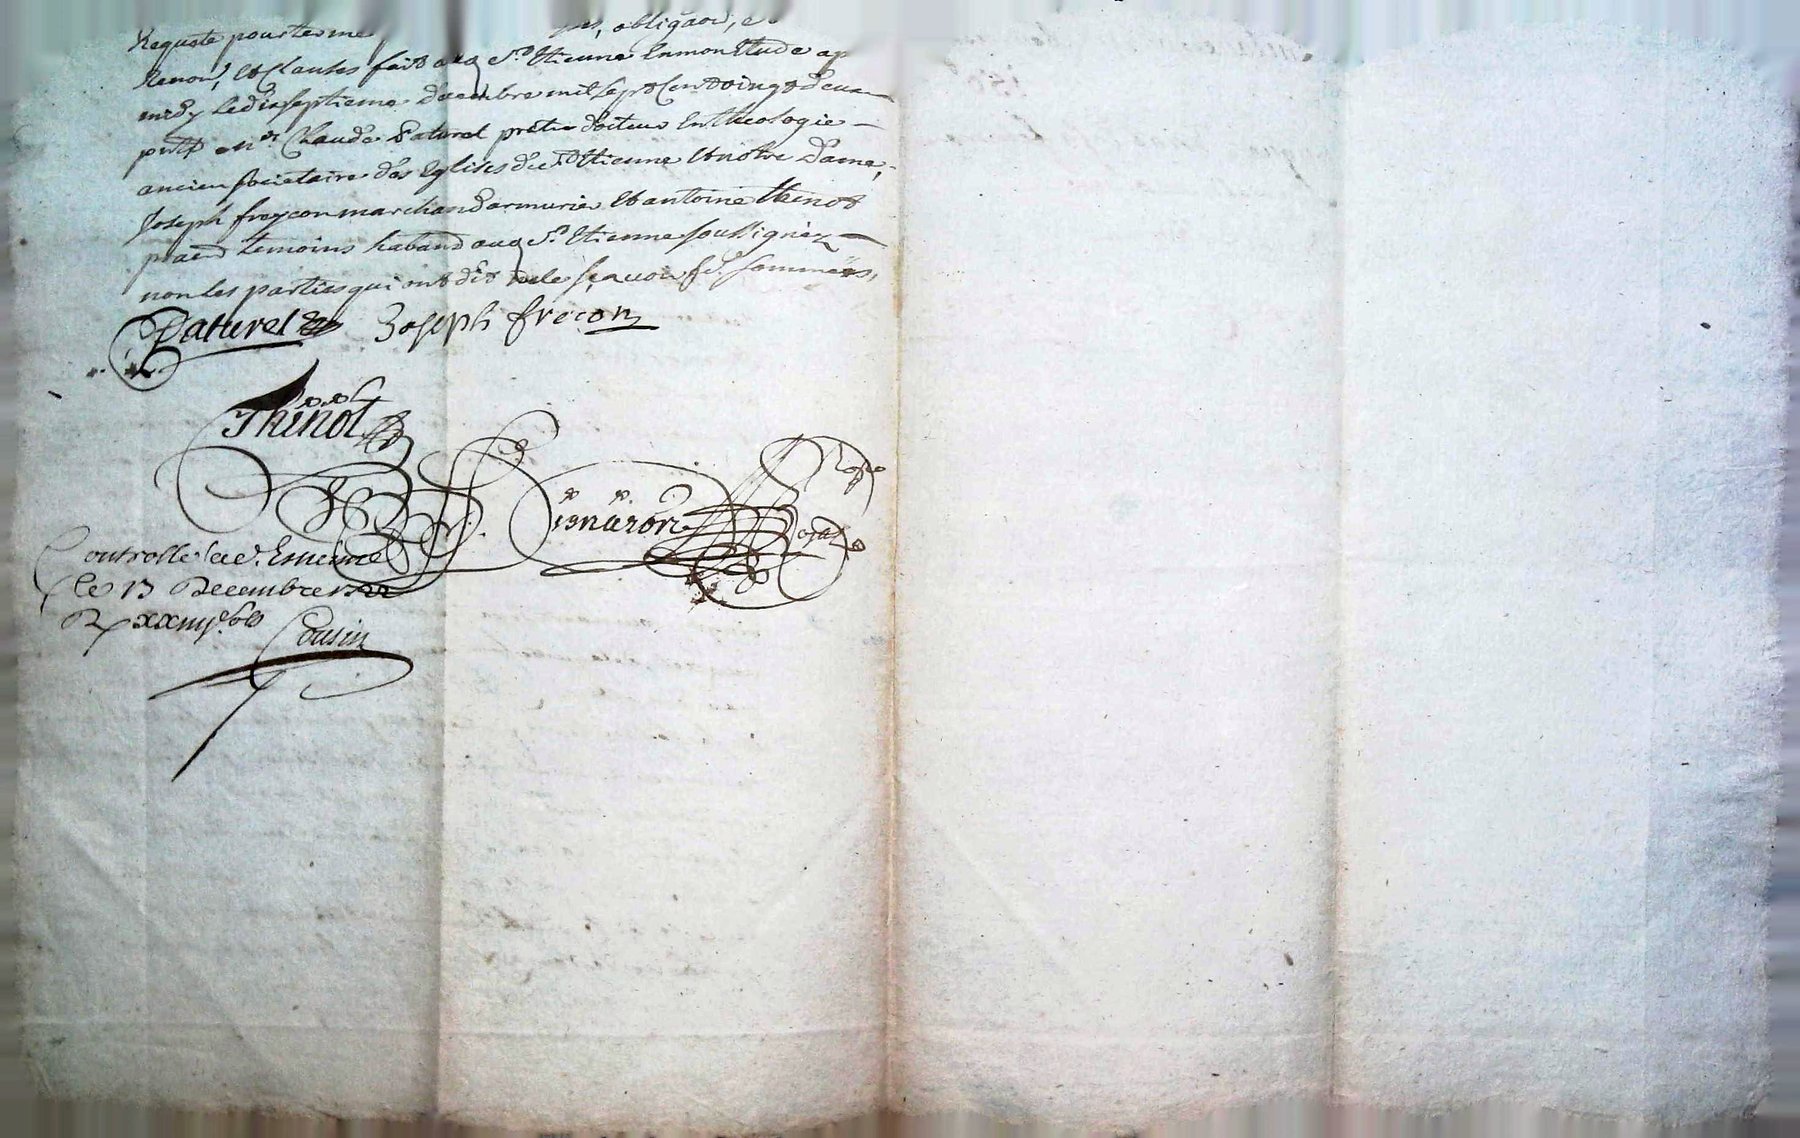 Requste pour terme obligãoñ, e
Renoñ, et Clauses fait aud St. Etienne En mon Etude ap
midy Le dixseptieme decembre mil sept Cent vingt deux
pnts Mre Claude Paturel prêtre docteur En theologie
ancien societaire des Eglises de St. Etienne Et notre dame,
Joseph freycon marchand armurier Et antoine thenot
pratd temoins habans aud St. Etienne soussignéz
non les parties qui ont dit ne le sçavoir fe. sommées,
Paturel Joseph frecon
Thenot
Controllé a St. Estienne
le 13 Decembre 1722
R xxiiij s
Cousin